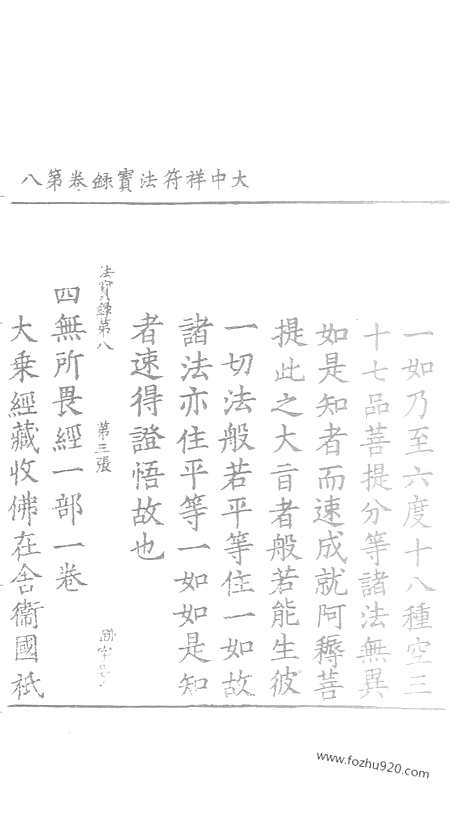 大中祥符法寶録卷第八
一如乃至六度十八種空三
十七品菩提分等諸法無異
如是知者而速成就阿耨菩
提此之大㫖者般若能生彼
一切法般若平等住一如故
諸法亦住平等一如如是知
者速得證悟故也
法寶録第八 第三張
四無所畏經一部一卷
大乘經藏收佛在舍衞國祇
www.fozhu920.com